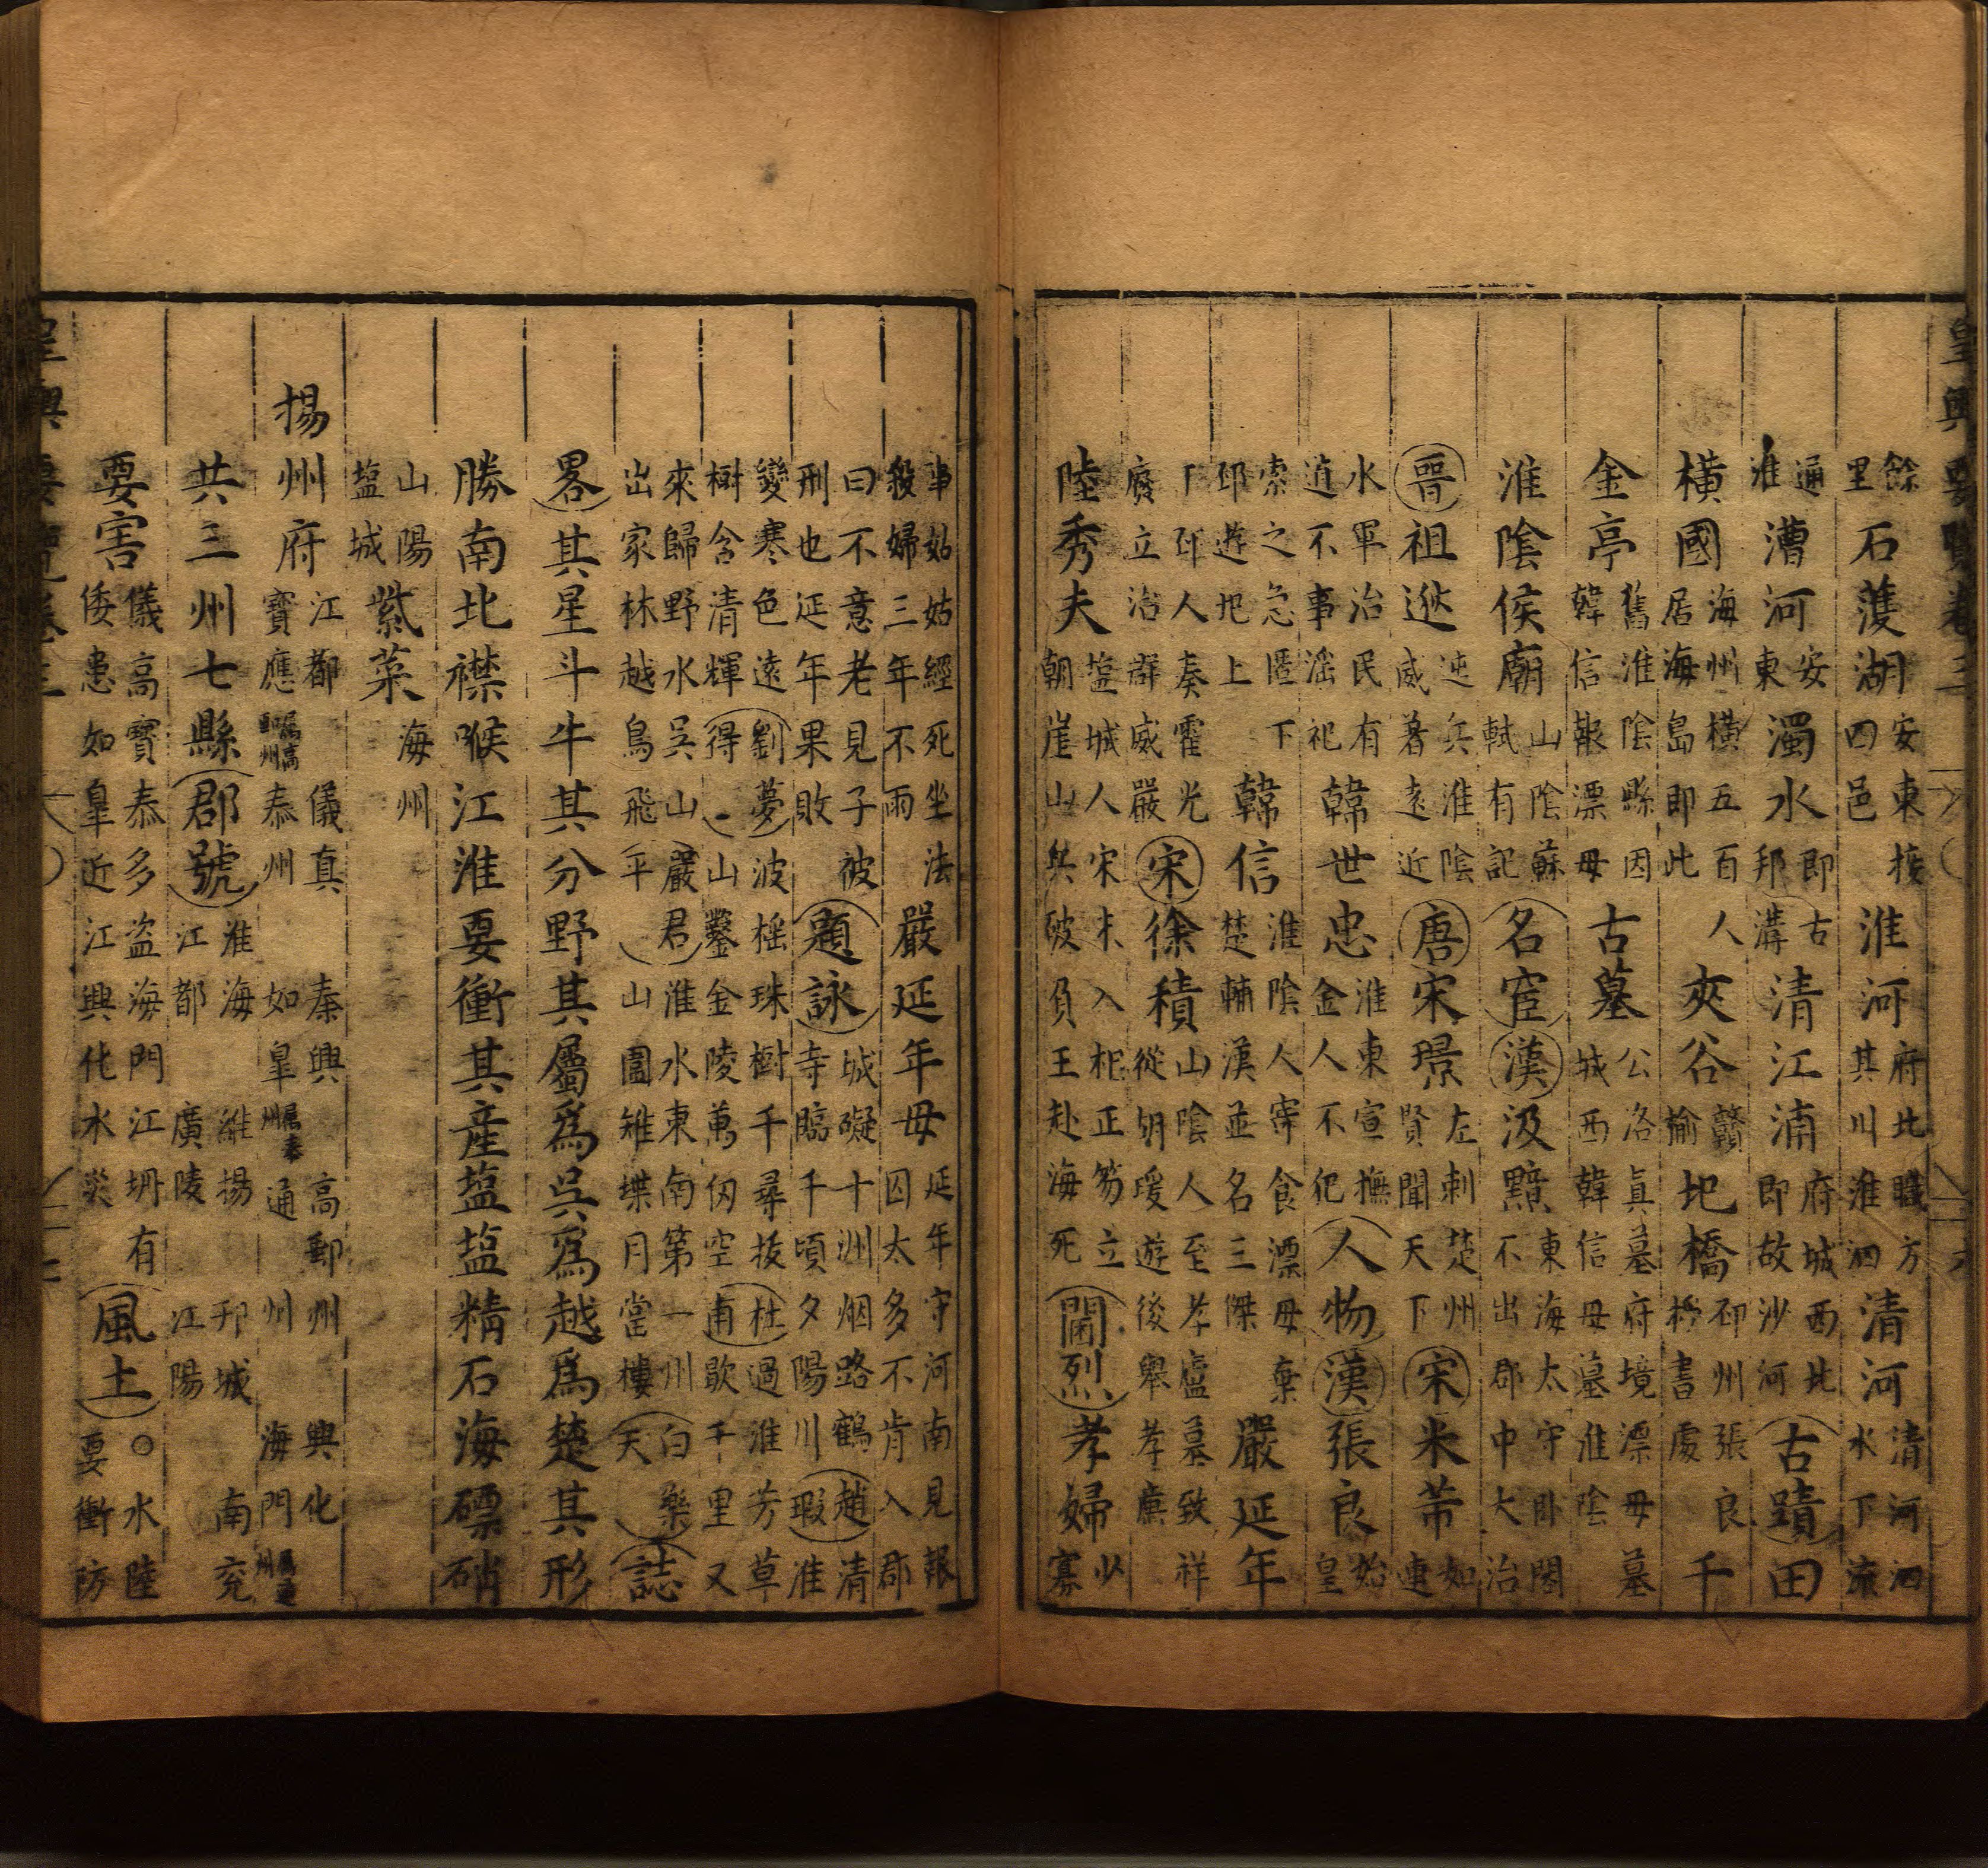 皇輿要覽卷三
餘里石䕶湖安東接四邑淮河府北職方其川淮泗清河清河泗水下流
通淮漕河安東濁水即古邗溝清江浦府城西北即故沙河古蹟田
橫國海州橫五百人居海島即此夾谷贛榆圯橋邳州張良授書處千
金亭舊淮陰縣因韓信報漂母古墓公洛真墓府境漂母墓城西韓信母墓淮陰
淮陰侯廟山陰蘇軾有記名宦漢汲黯東海太守卧閤不出郡中大治
晋祖逖屯兵淮陰威著遠近唐宋璟左刺楚州賢聞天下宋米芾如連
水軍治民有道不事滛祀韓世忠淮東宣撫金人不犯人物漢張良始皇
索之急匿下邳遊圯上韓信淮陰人寄食漂母棄楚輔漢並名三傑嚴延年
下邳人奏霍光廢立治群威嚴宋徐積山陰人至孝廬墓致祥從胡瑗遊後舉孝廉
陸秀夫塩城人宋末入相正笏立朝崖山兵破負王赴海死閫烈孝婦少寡
事姑姑經死坐法殺婦三年不雨嚴延年母延年守河南見報囚太多不肯入郡
曰不意老見子被刑也延年果敗題詠城礙十洲烟路鶴寺臨千頃夕陽川趙嘏清淮
變寒色遠樹含清輝劉夢得波摇珠樹千尋拔山鑿金陵萬仞空杜甫過淮芳草歇千里又
來歸野水吳山出家林越鳥飛嚴君平淮水東南第一州山圍雉堞月當樓白樂天誌
畧其星斗牛其分野其屬為吳為越為楚其形
勝南北襟喉江淮要衝其産塩塩精石海磦硝
山陽塩城紫菜海州
揚州府江都寶應屬高郵州儀真泰州泰興如皐屬泰州高郵州通州興化海門屬通州
共三州七縣郡號淮海江都維揚廣陵邗城江陽南兗
要害儀高寶泰多盗海門江坍有倭患如皐近江興化水災風土○水陸要衝防